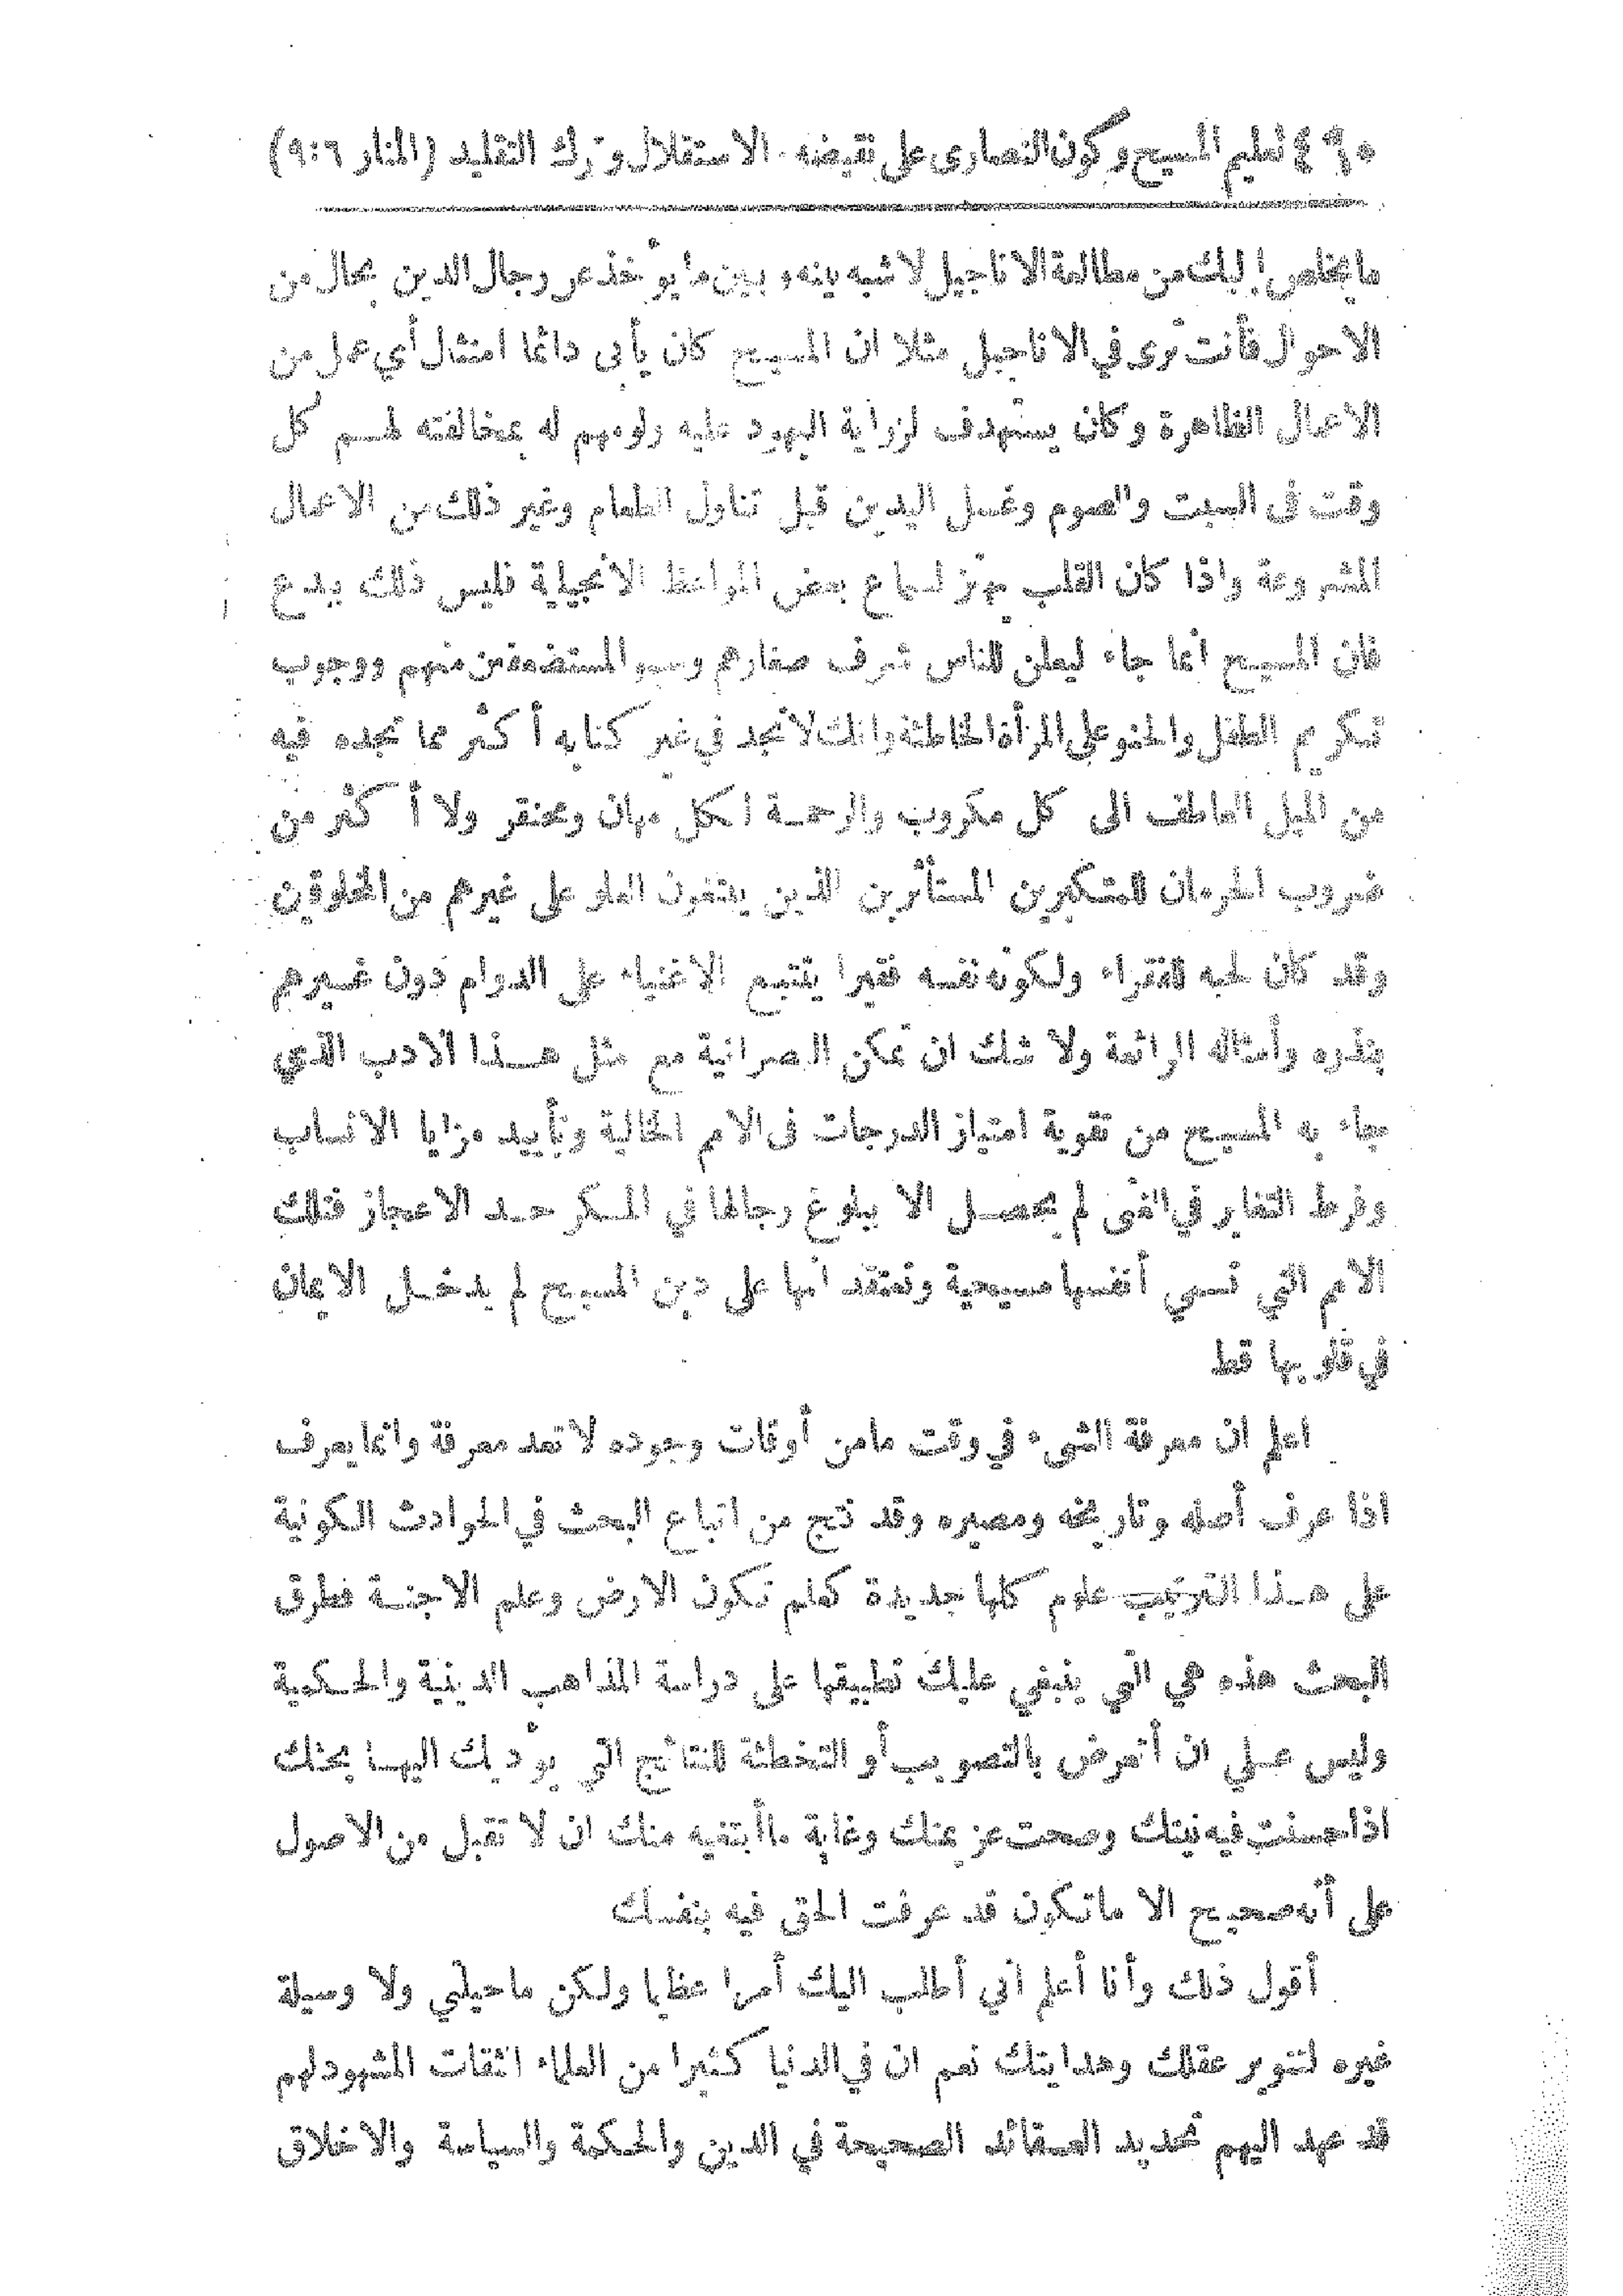 تعليم المسيح وكون النصارى على نقيضه. الاستقلال وترك التقليد (المنار ٩:٦)
ما يخلص اليك من مطالعة الاناجيل لا شبه بينه وبين ما يؤخذ عن رجال الدين بحال من
الاحوال فأنت ترى في الاناجيل مثلا ان المسيح كان يأبى دائما امتثال أي عمل من
الاعمال الظاهرة وكان يستهدف لزراية اليهود عليه ولومهم له بمخالفته لهم كل
وقت في السبت والصوم وغسل اليدين قبل تناول الطعام وغير ذلك من الاعمال
المشروعة واذا كان القلب يهتز لسماع بعض المواعظ الانجيلية فليس ذلك ببدع
فان المسيح انما جاء ليعلن للناس شرف صغارهم وسمو المستضعفين منهم ووجوب
تكريم الطفل والحنو على المرأة الخاطئة وانك لا تجد في غير كتابه أكثر مما تجده فيه
من الميل العاطف الى كل مكروب والرحمة لكل مهان ومحتقر ولا أكثر من
ضروب الحرمان للمتكبرين المستأثرين الذين يبتغون العلو على غيرهم من المخلوقين
وقد كان لحبه للفقراء ولكونه نفسه فقيرا يتتبع الاغنياء على الدوام دون غيرهم
بنذره وأمثاله الرائعة ولا شك ان تمكن النصرانية مع مثل هذا الادب الذي
جاء به المسيح من تقوية امتياز الدرجات في الامم الحالية وتأييد مزايا الانساب
وفرط التغاير في الغنى لم يحصل الا ببلوغ رجالها في المكر حد الاعجاز فتلك
الامم التي تسمي أنفسها مسيحية وتعتقد انها على دين المسيح لم يدخل الايمان
في قلوبها قط
اعلم ان معرفة الشيء في وقت ما من أوقات وجوده لا تعد معرفة وانما يعرف
اذا عرف أصله وتاريخه ومصيره وقد نتج من اتباع البحث في الحوادث الكونية
على هذا الترتيب علوم كلها جديدة كعلم تكون الارض وعلم الاجنة فطرق
البحث هذه هي التي ينبغي عليك تطبيقها على دراسة المذاهب الدينية والحكمية
وليس علي ان أتعرض بالتصويب أو التخطئة للنتائج التي يؤديك اليها بحثك
اذا حسنت فيه نيتك وصحت عزيمتك وغاية ما أبتغيه منك ان لا تقبل من الاصول
على أنه صحيح الا ما تكون قد عرفت الحق فيه بنفسك
أقول ذلك وأنا أعلم اني أطلب اليك أمرا عظيما ولكن ما حيلتي ولا وسيلة
غيره لتنوير عقلك وهدايتك نعم ان في الدنيا كثيرا من العلماء الثقات المشهود لهم
قد عهد اليهم تحديد العقائد الصحيحة في الدين والحكمة والسياسة والاخلاق